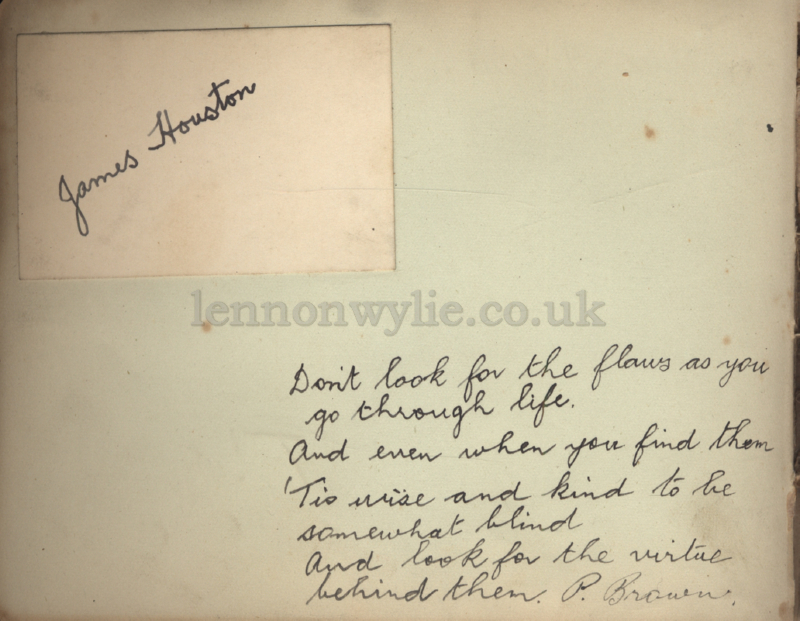 James Houston
lennonwylie.co.uk
Don't look for the flaws as you
go through life.
And even when you find them
'Tis wise and kind to be
somewhat blind
And look for the virtue
behind them. P. Brown.